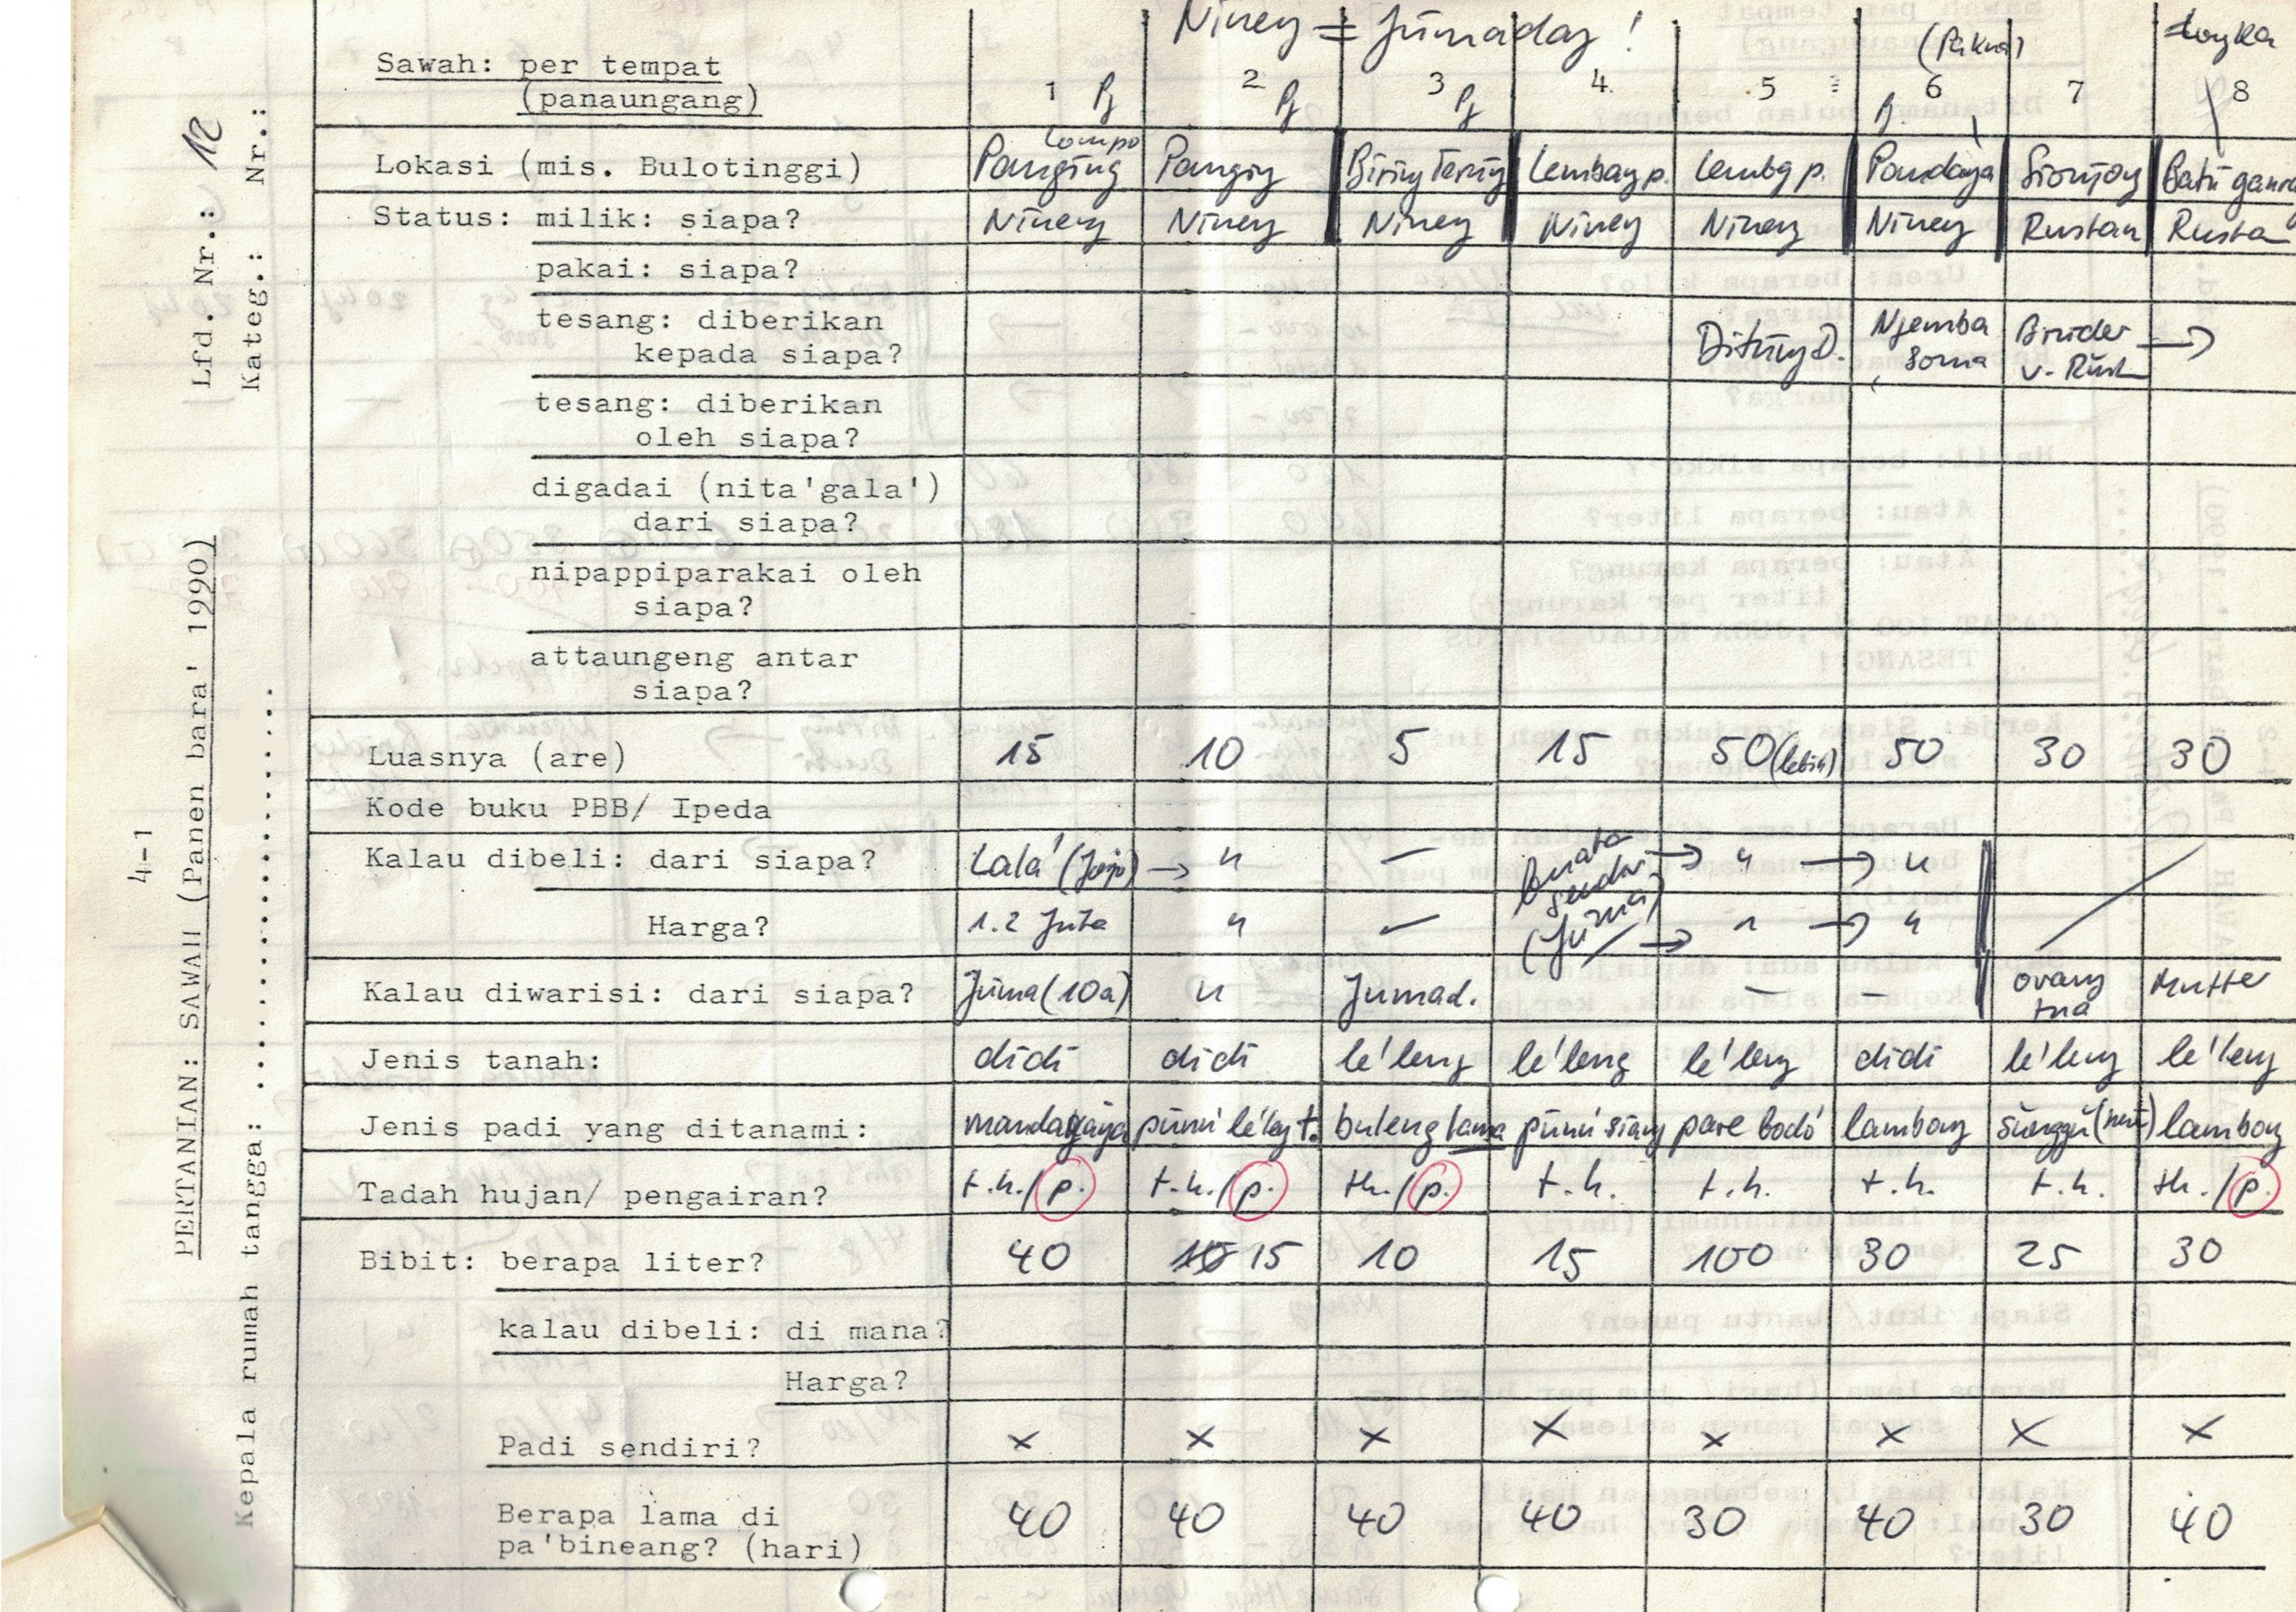 Niney = Jumaday !
(Pakua)
Sawah: per tempat
(panaungang) 1 Pf 2 Pf 3 Pf 4 5 6 P. 7 8
Lfd. Nr.: 12
Kateg.: Nr.:
4-1
PERTANIAN: SAWAH (Panen bara' 1990)
Kepala rumah tangga: ..................
Lompo
Lokasi (mis. Bulotinggi) Panging Pangiy Lembay p. Lemby p. Pandaya
Status: milik: siapa? Niney Niney Niney Niney Niney Niney Rustan Rusta
pakai: siapa?
tesang: diberikan
kepada siapa? Dituny D. Njemba Soma Bruder v. Rust →
tesang: diberikan
oleh siapa?
digadai (nita'gala')
dari siapa?
nipappiparakai oleh
siapa?
attaungeng antar
siapa?
Luasnya (are) 15 10 5 15 50 (lebih) 50 30 30
Kode buku PBB/ Ipeda
Kalau dibeli: dari siapa? Lala' (Jojo) → " — → " → "
Harga? 1.2 Juta " — → " → "
Kalau diwarisi: dari siapa? Juma (10a) " Jumad. — — orang tua Mutter
Jenis tanah: didi didi le'leng le'leng le'leng didi le'leng le'leng
Jenis padi yang ditanami: pare bodo' lambay lambay
Tadah hujan/ pengairan? t.h./p. t.h./p. th./p. t.h. t.h. t.h. t.h. th./p.
Bibit: berapa liter? 40 15 10 15 100 30 25 30
kalau dibeli: di mana?
Harga?
Padi sendiri? x x x x x x x x
Berapa lama di
pa'bineang? (hari) 40 40 40 40 30 40 30 40